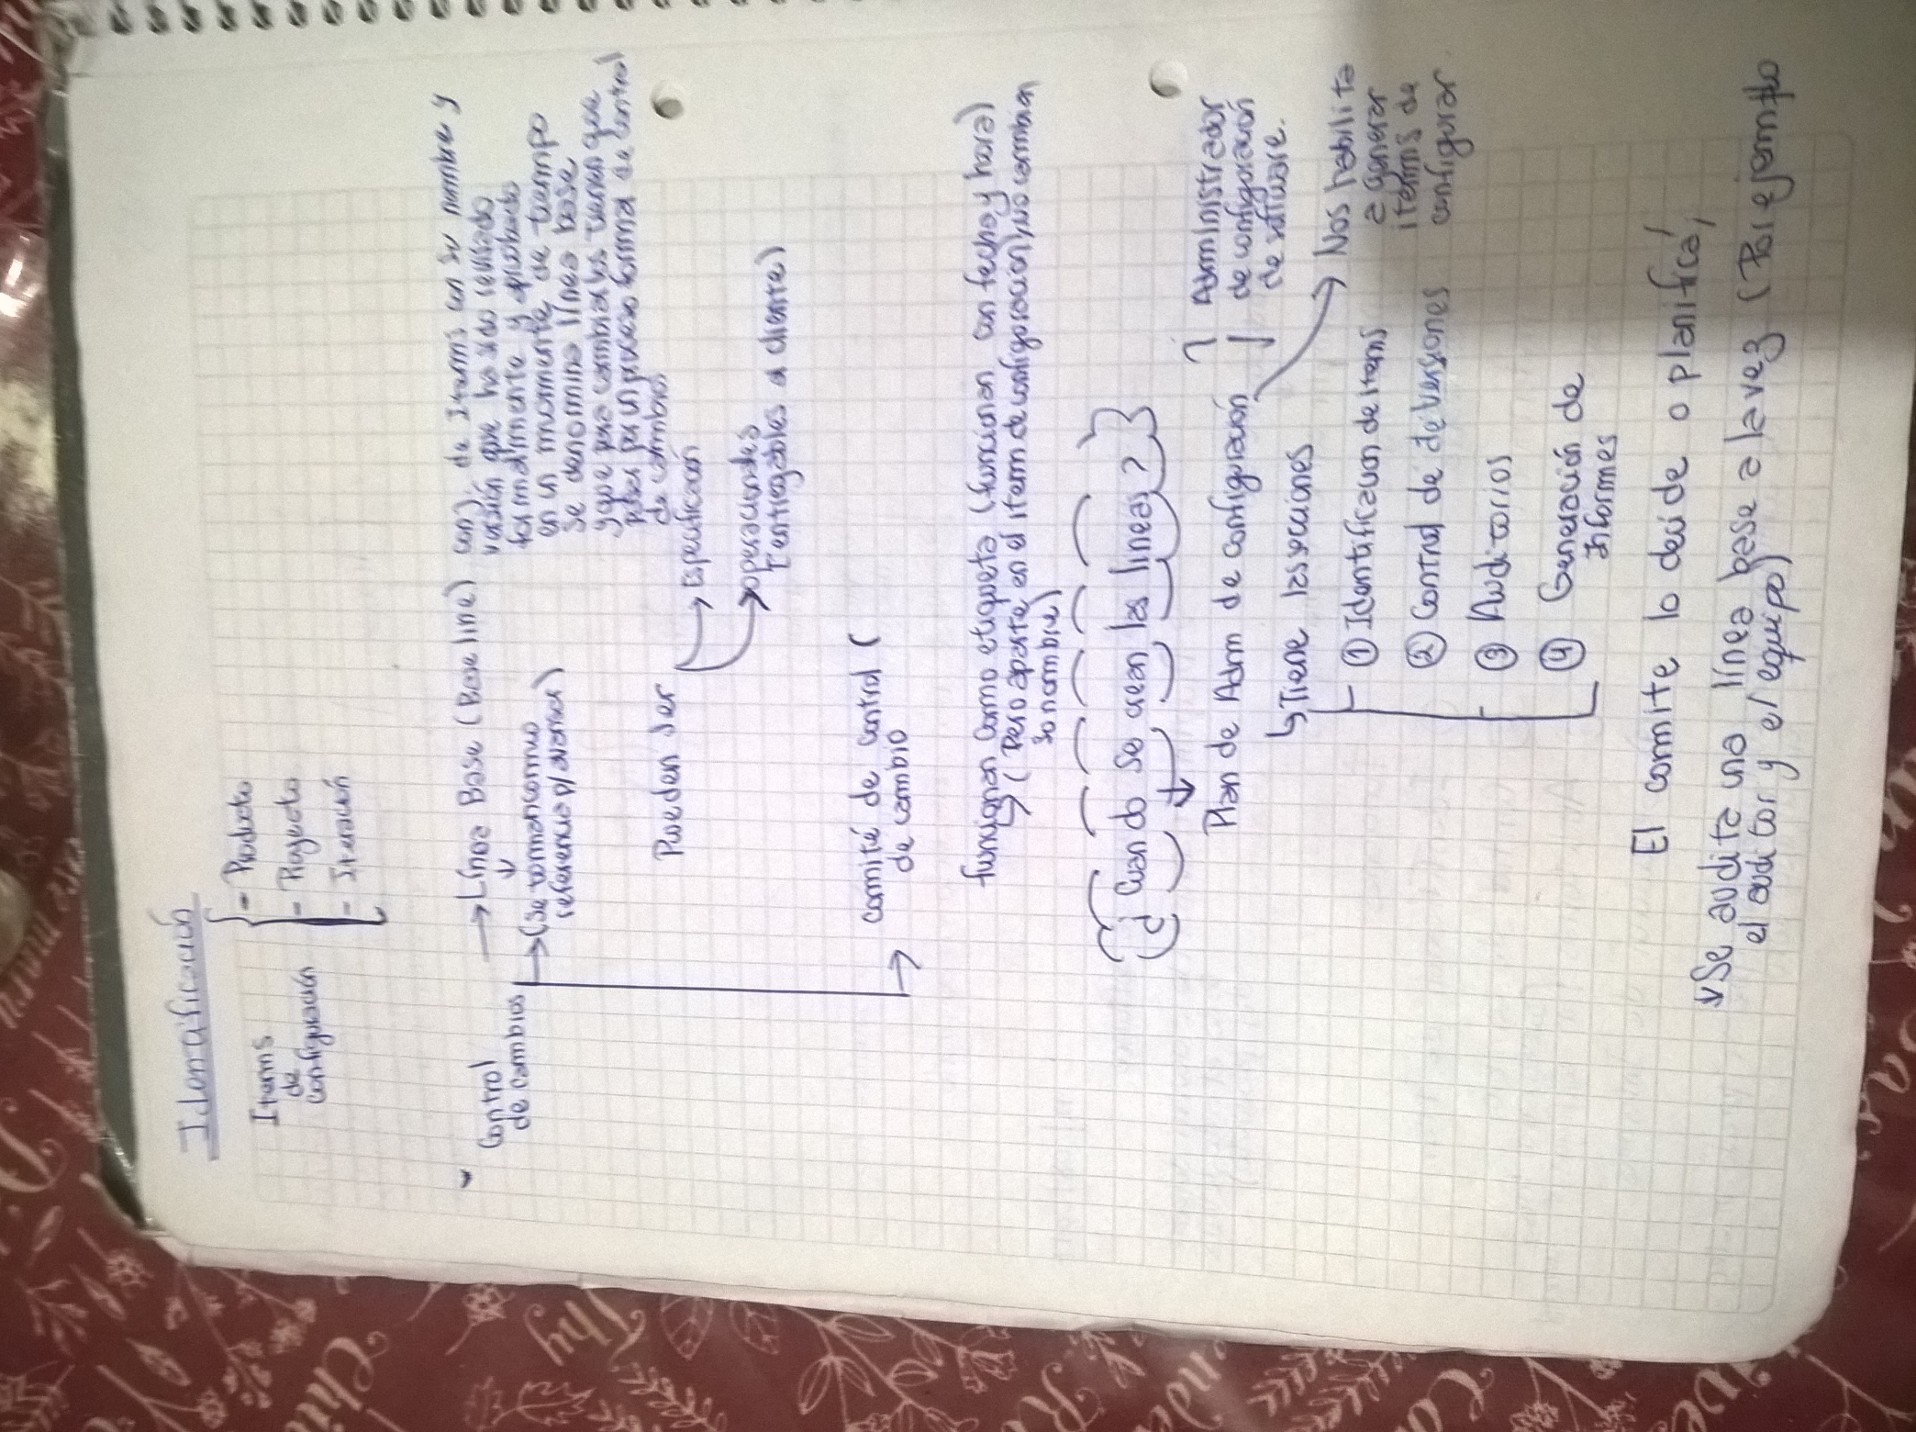 Identificación
Items
de
configuración
- Producto
- Proyecto
- Iteración
Control
de cambios
Línea Base (Base line)
(Se toman como
referencia p/ avanzar)
conj. de Items con su nombre y
versión que ha sido revisado
formalmente y aprobado
en un momento de tiempo
se denomina línea base
y que para cambiarlos tienen que
pasar por un proceso formal de control
de cambios
Pueden ser
Especificación
operacionales
(entregables al cliente)
comité de control (
de cambio
funcionan como etiqueta (funcionan con fecha y hora)
(Pero aparte en el item de configuración, no cambian
su nombre)
¿Cuando se crean las lineas?
Plan de Adm de configuración
Administrador
de configuración
de software.
Tiene las secciones
Nos habilita
a generar
items de
configurar
① Identificacion de items
② Control de de versiones
③ Auditorios
④ Generación de
Informes
El comite lo decide o planifica,
Se audita una línea base a la vez (Por ejemplo
el auditor y el equipo)